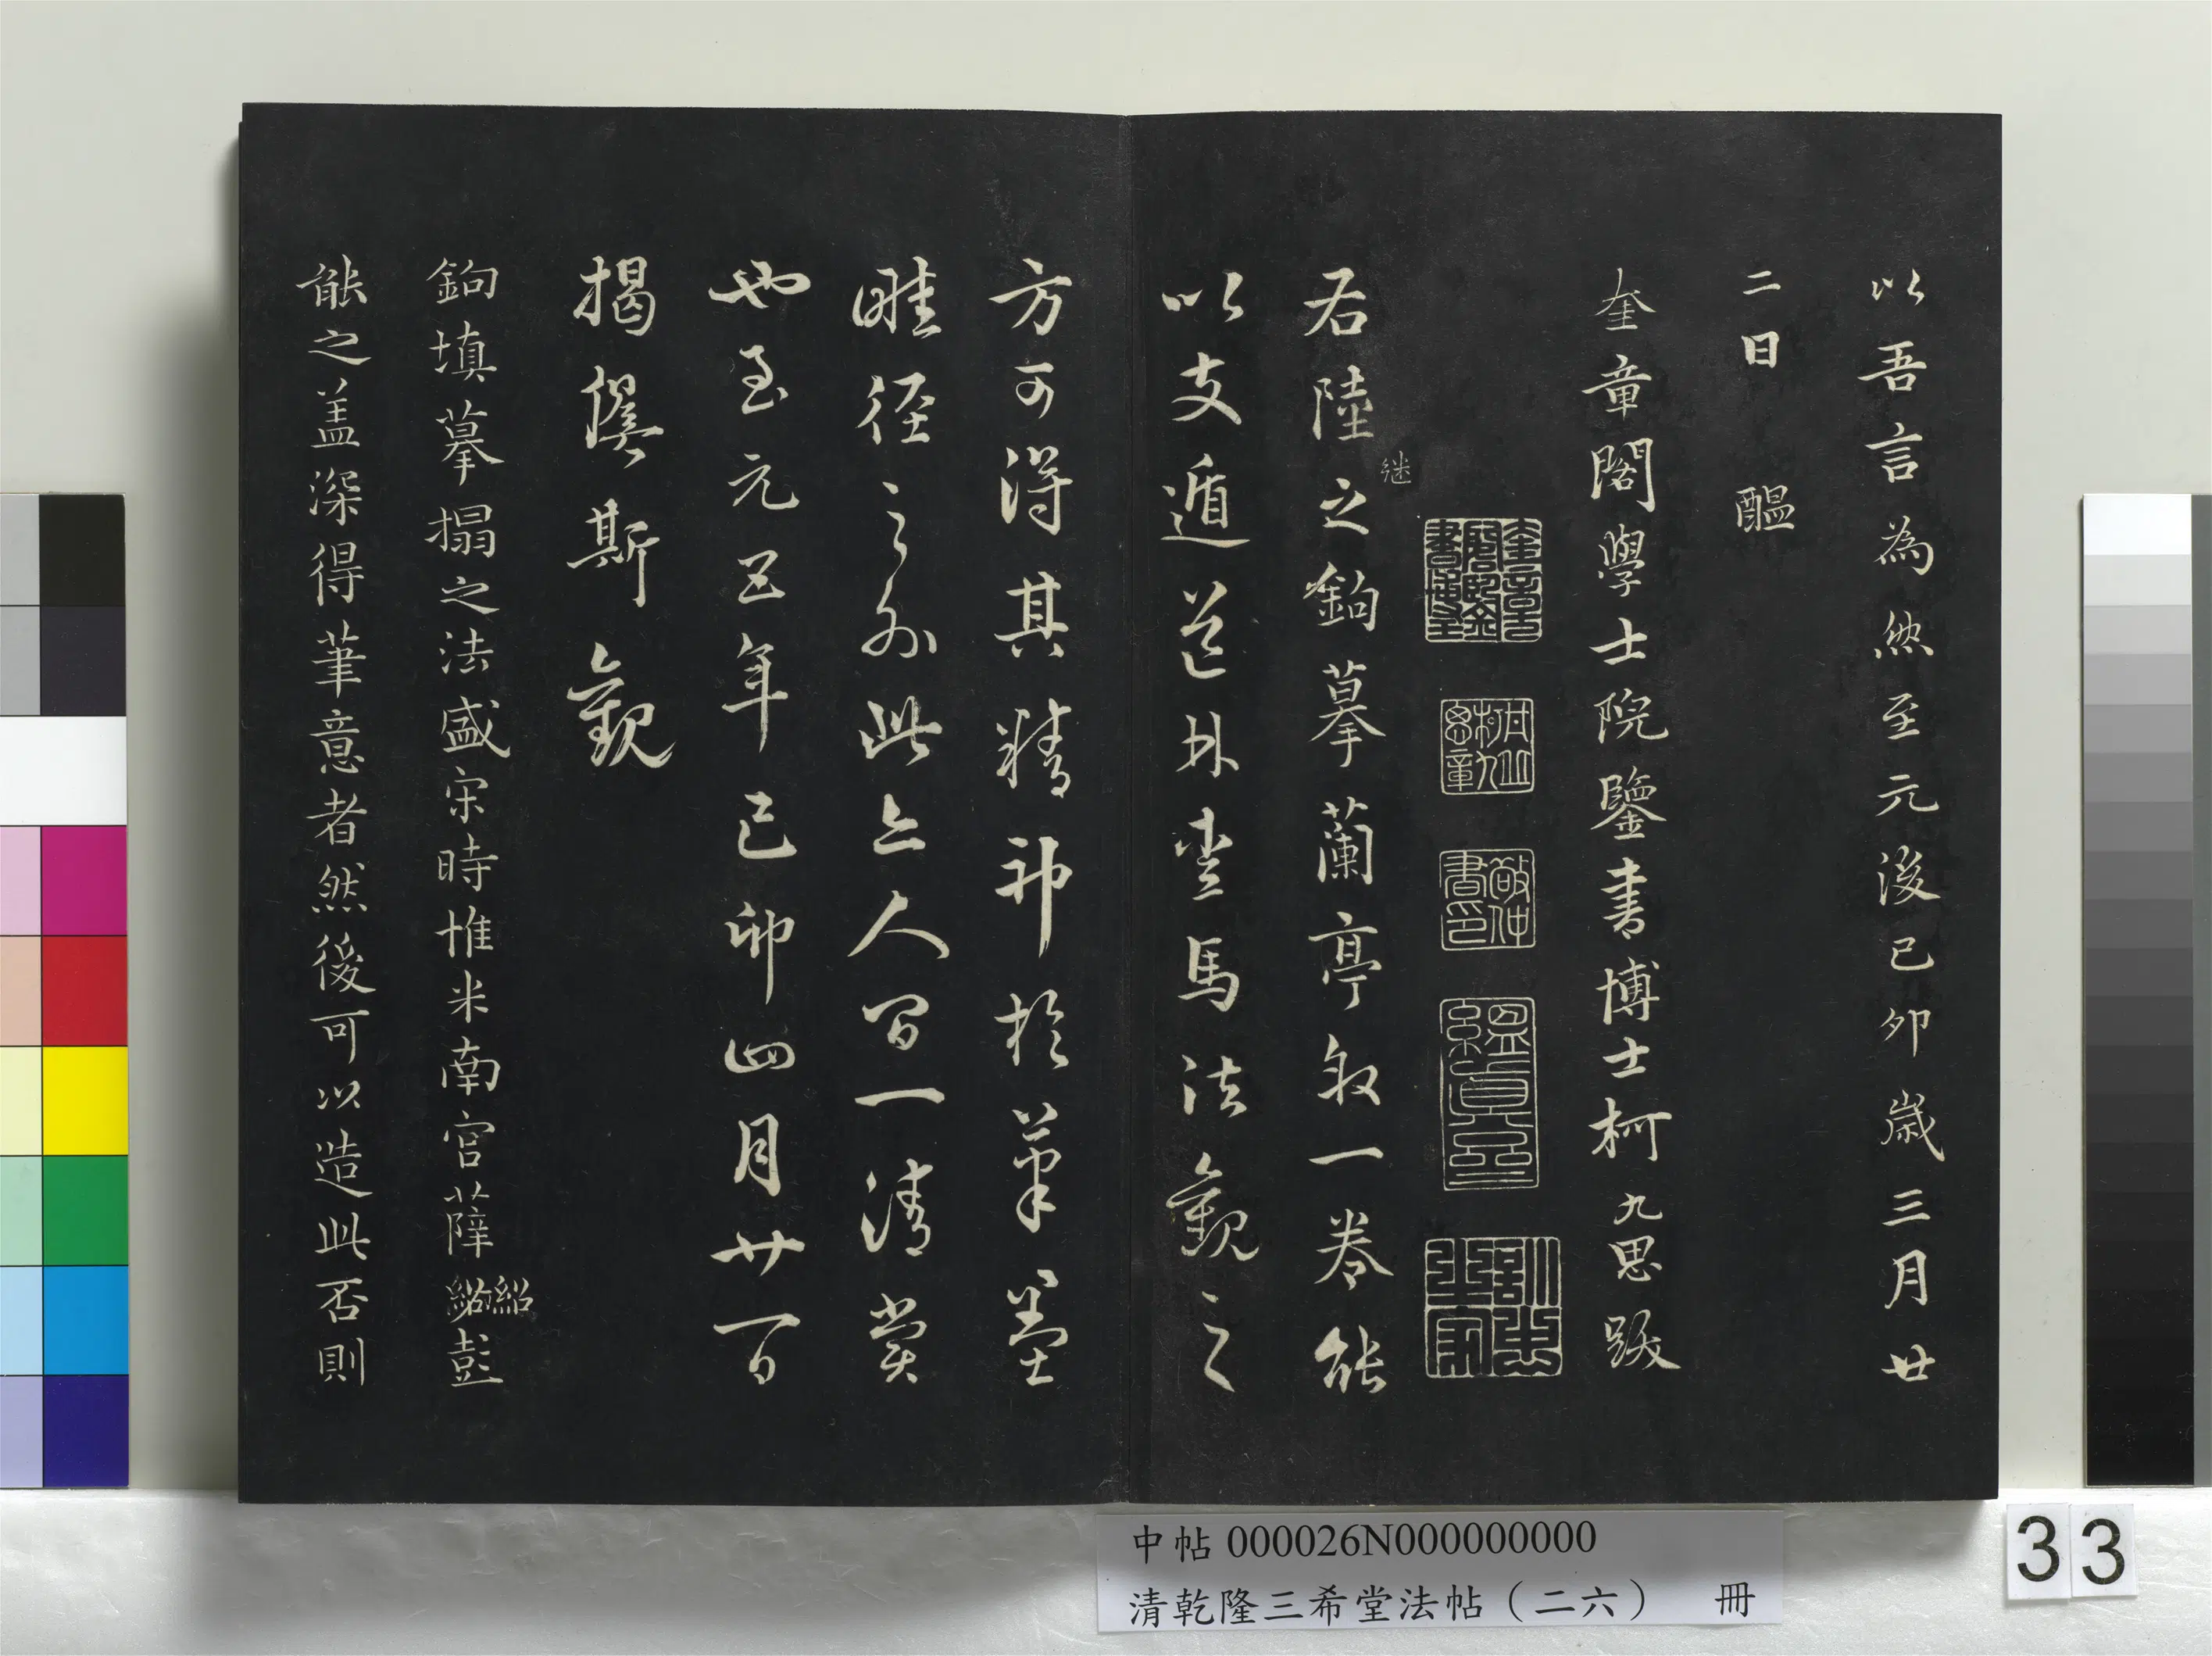 以吾言為然至元後己卯歲三月廿
二日 醖
奎章閣學士院鑒書博士柯九思跋
奎章閣鑒書博士
敬仲書印
縕真齋
訓忠之家
若陸继之鉤摹蘭亭敘一卷能
以支遁道林愛馬法觀之
方可得其精神於筆墨
畦径之外此亦人间一清賞
也至元五年己卯四月廿一日
揭傒斯觀
鉤填摹搨之法盛宋時惟米南宮薛紹彭
能之盖深得筆意者然後可以造此否則
中帖 000026N000000000
清乾隆三希堂法帖（二六） 冊
33